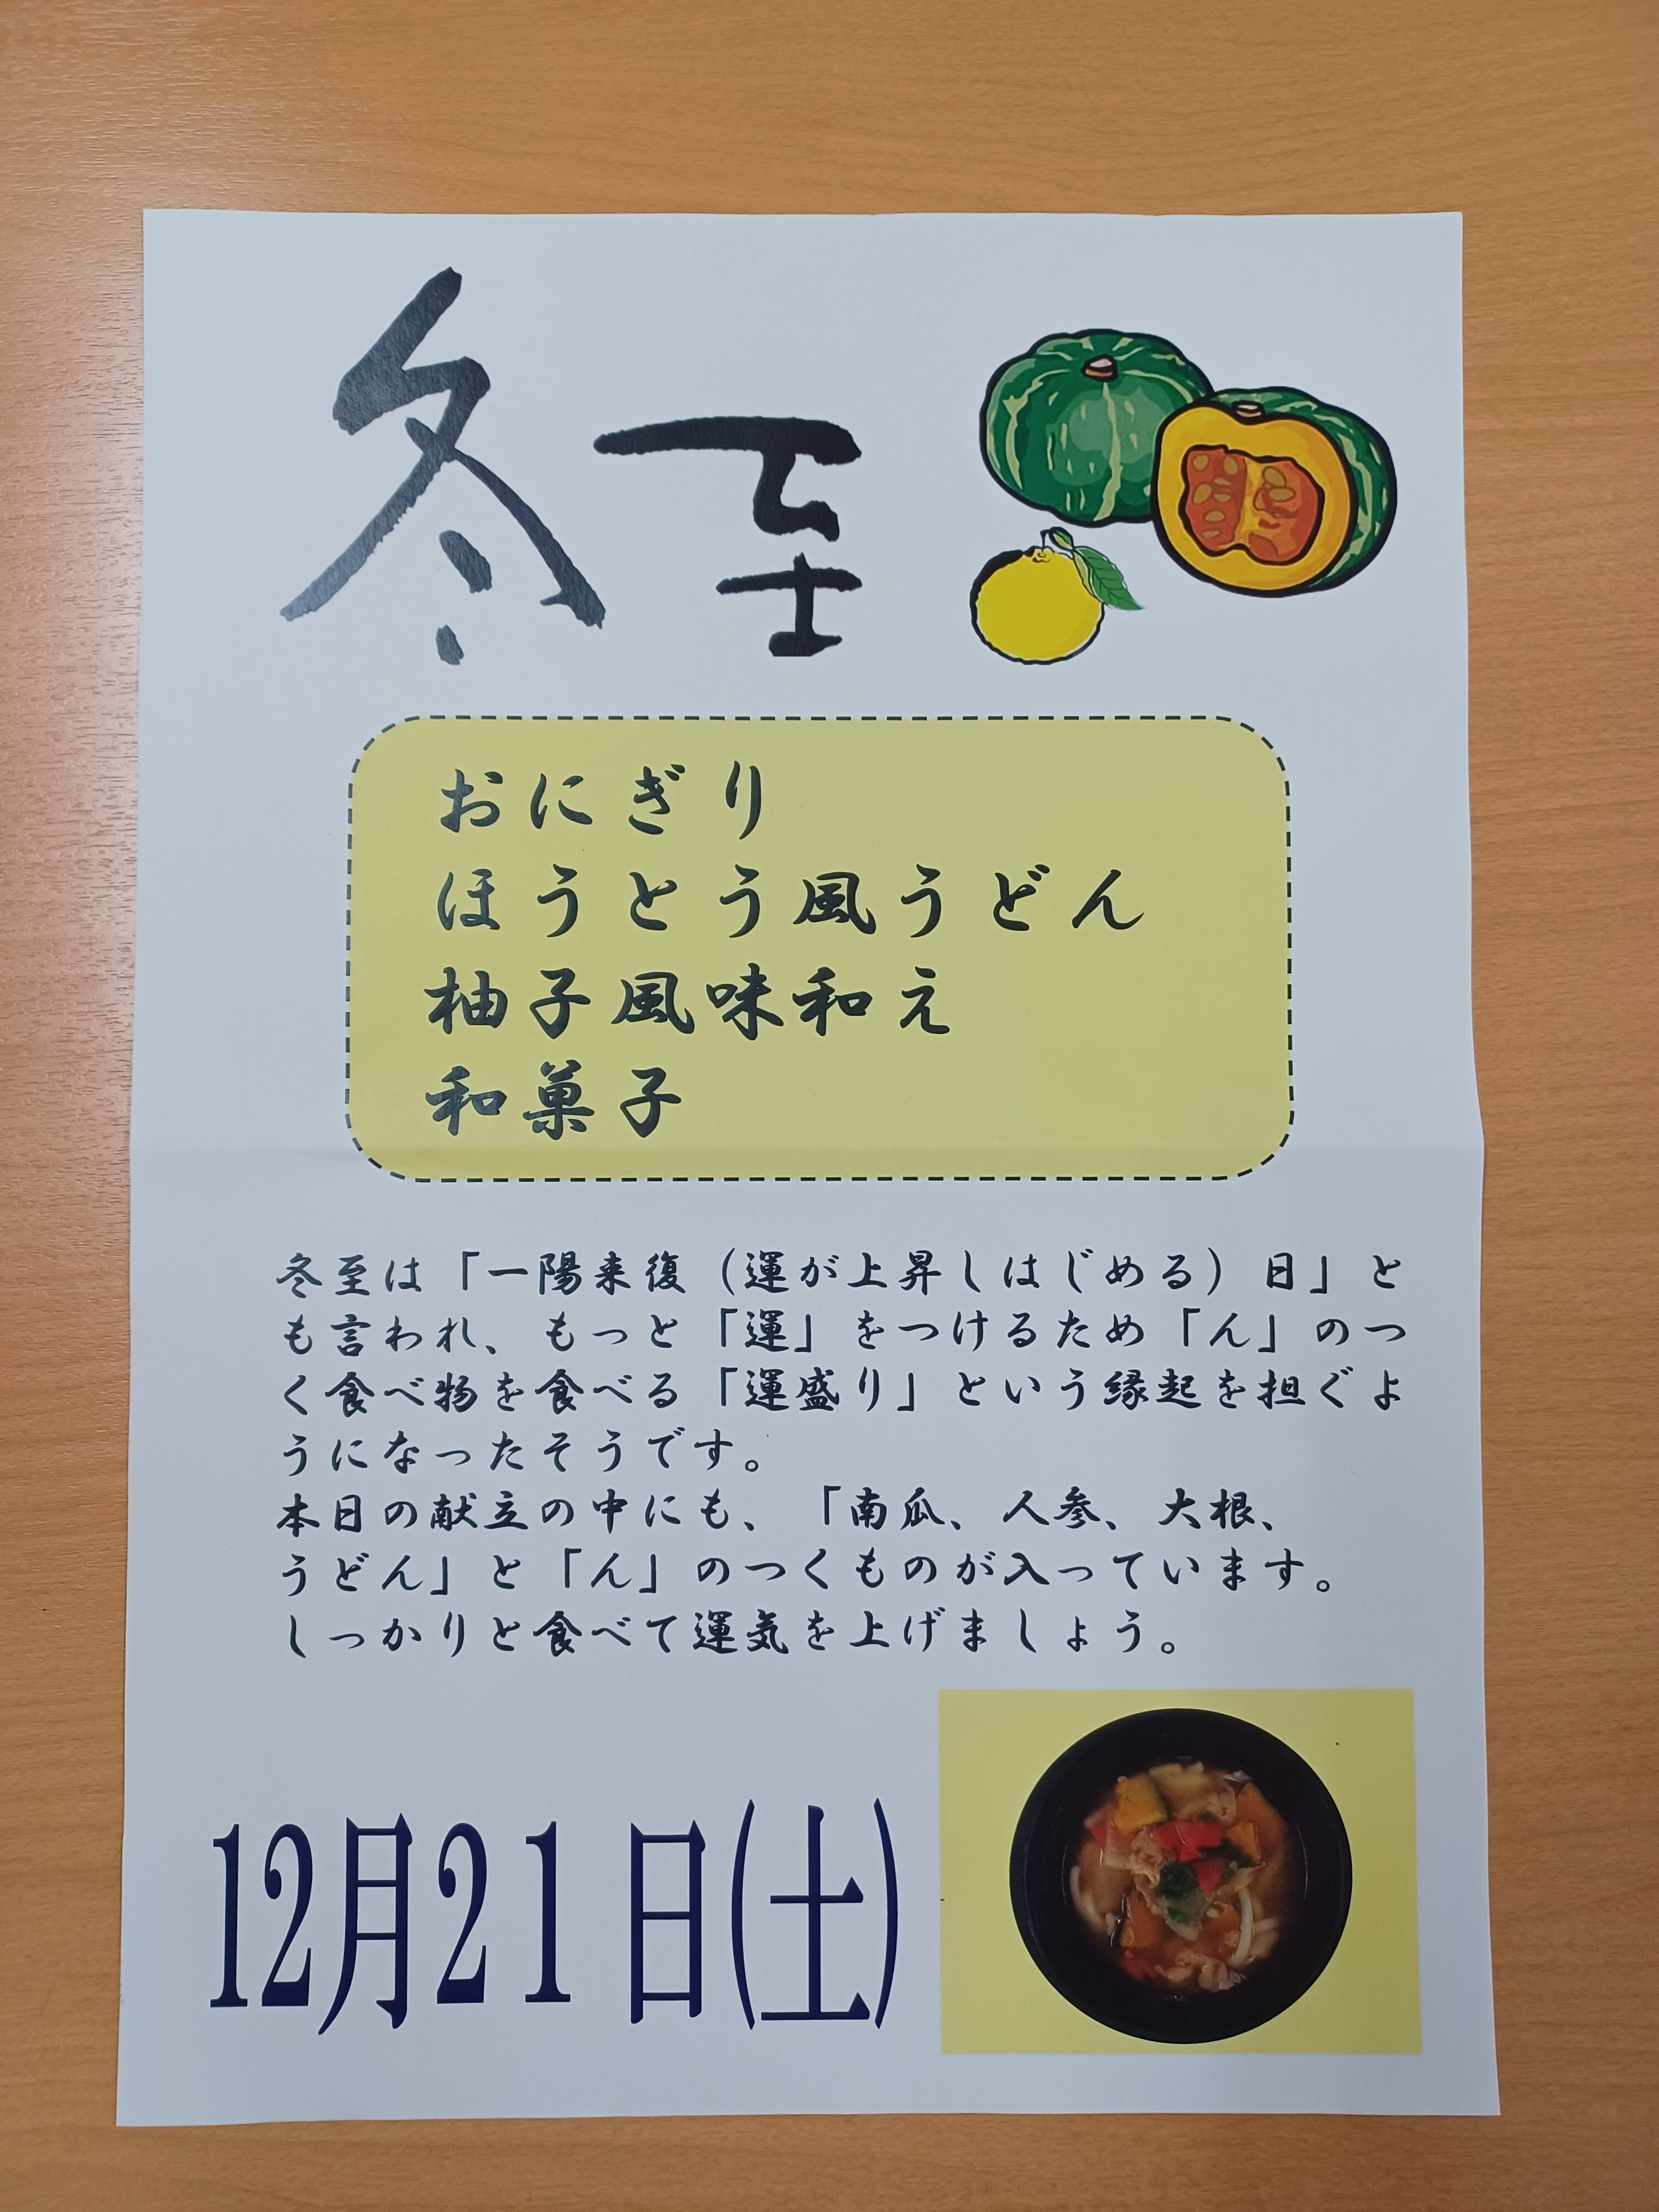 冬至
おにぎり
ほうとう風うどん
柚子風味和え
和菓子
冬至は「一陽来復（運が上昇しはじめる）日」と
も言われ、もっと「運」をつけるため「ん」のつ
く食べ物を食べる「運盛り」という縁起を担ぐよ
うになったそうです。
本日の献立の中にも、「南瓜、人参、大根、
うどん」と「ん」のつくものが入っています。
しっかりと食べて運気を上げましょう。
12月21日(土)